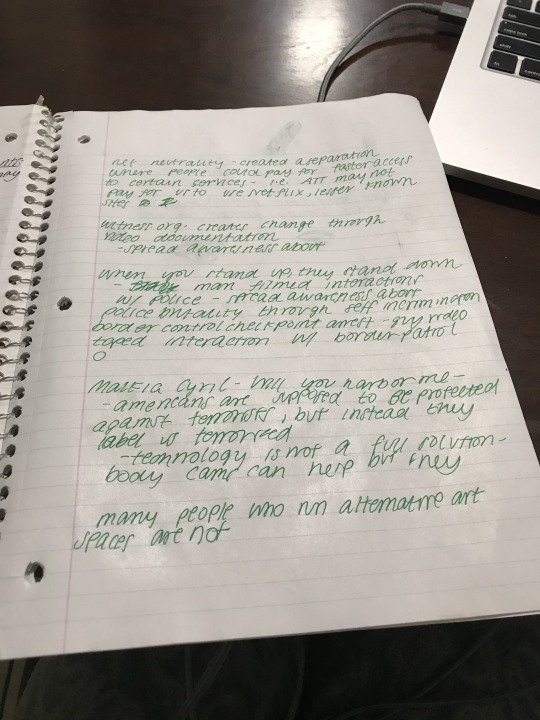 net neutrality - created a separation
where people could pay for faster access
to certain services - i.e. ATT may not
pay for us to use Netflix, lesser known
sites
witness.org - creates change through
video documentation
- spread awareness about
when you stand up, they stand down
- man filmed interactions
w/ police - spread awareness about
police brutality through self incrimination
border control checkpoint arrest - guy video
taped interaction w/ border patrol
O
Malkia Cyril - Will you harbor me -
- americans are supposed to be protected
against terrorists, but instead they
label is terrorized
- technology is not a full solution -
body cams can help but they
many people who run alternative art
spaces are not